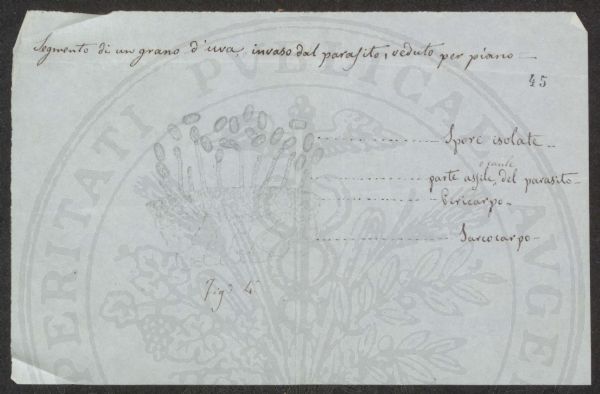 Segmento di un grano d'uva, invaso dal parasito, veduto per piano
45
Spore isolate
o caule
parte assile, del parasito
Piricarpo
Sarcocarpo
Fig.ª 4.
PERITATI PUBLICAE AUGE